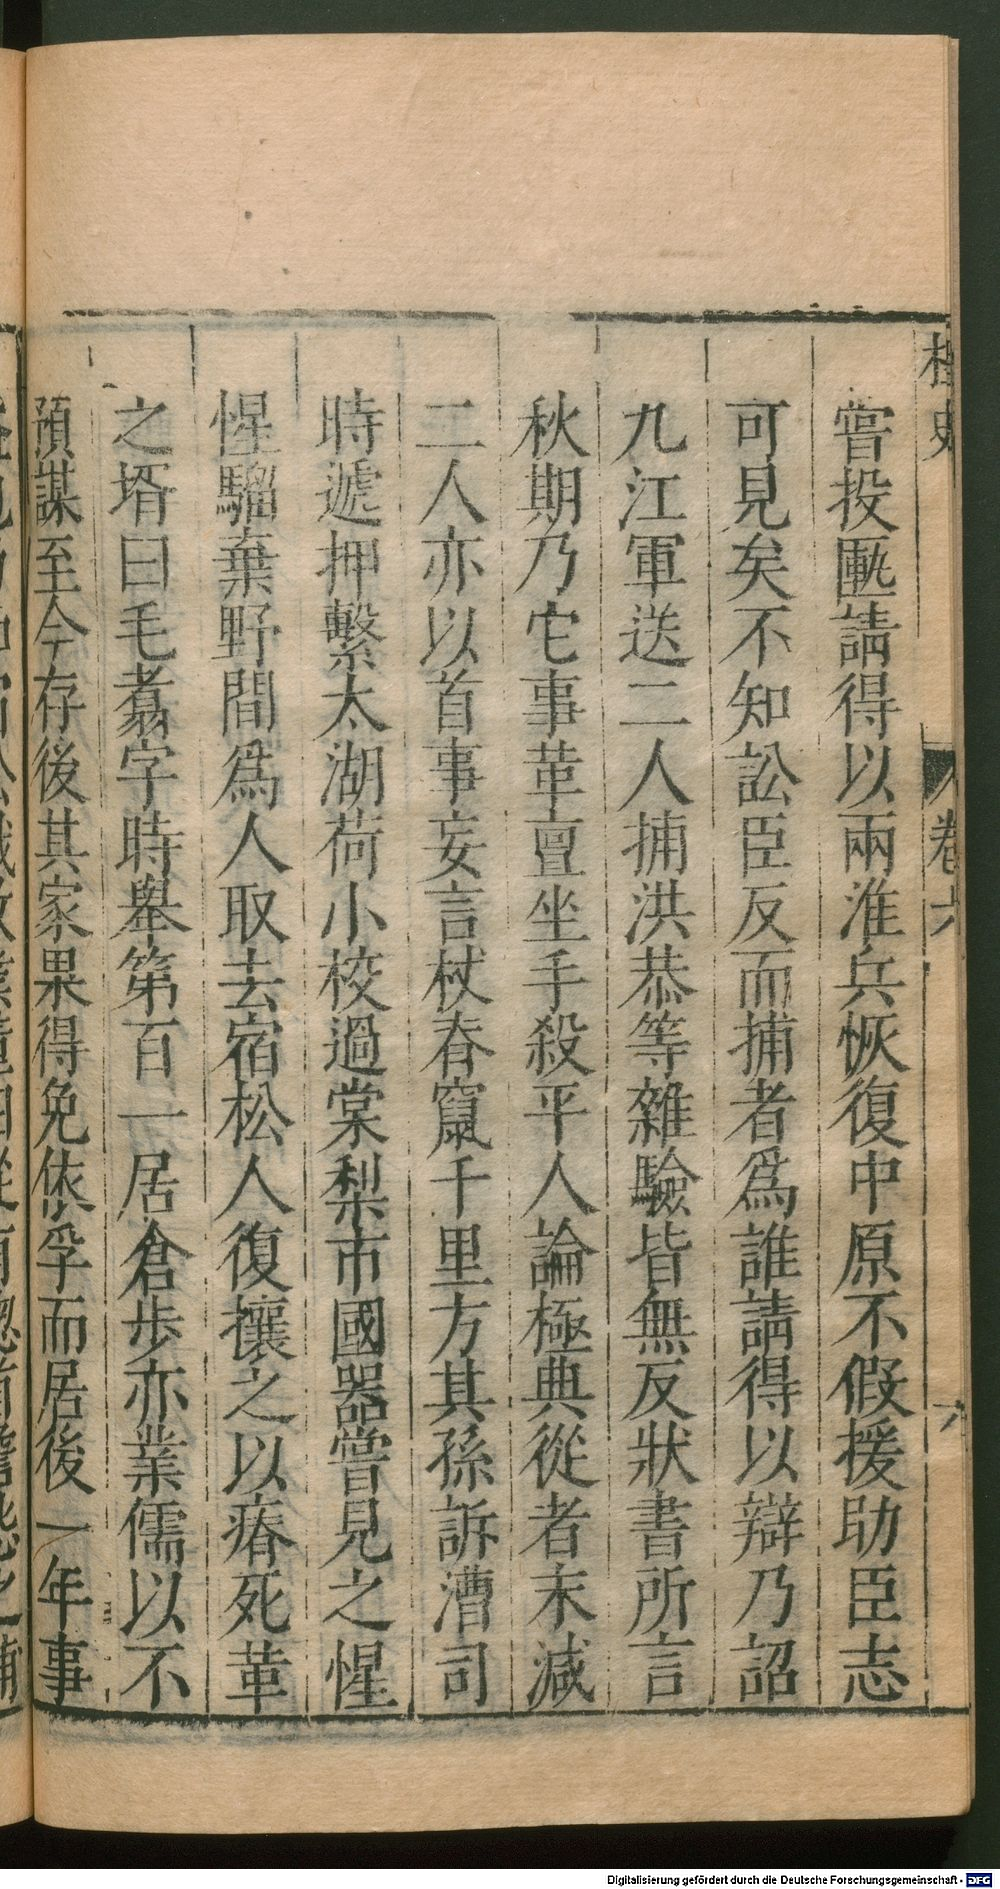 桯史
卷六
六
嘗投匭請得以兩淮兵恢復中原不假援助臣志
可見矣不知訟臣反而捕者爲誰請得以辯乃詔
九江軍送二人捕洪恭等雜驗皆無反狀書所言
秋期乃它事革亶坐手殺平人論極典從者末減
二人亦以首事妄言杖舂竄千里方其孫訴漕司
時遞押繫太湖荷小校過棠梨市國器嘗見之惺
惺騮棄野間爲人取去宿松人復攘之以瘠死革
之壻曰毛翥字時舉第百一居倉步亦業儒以不
預謀至今存後其家果得免依孚而居後一年事
Digitalisierung gefördert durch die Deutsche Forschungsgemeinschaft - DFG